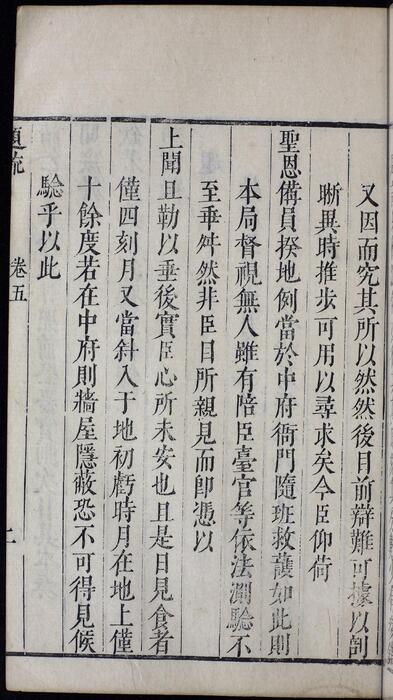 又因而究其所以然然後目前辯難可據以剖
晰異時推步可用以尋求矣今臣仰荷
聖恩備員揆地例當於中府衙門隨班救護如此則
本局督視無人雖有陪臣臺官等依法測驗不
至乖舛然非臣目所親見而卽憑以
上聞且勒以垂後實臣心所未安也且是日見食者
僅四刻月又當斜入于地初虧時月在地上僅
十餘度若在中府則牆屋隱蔽恐不可得見候
驗乎以此
卷五